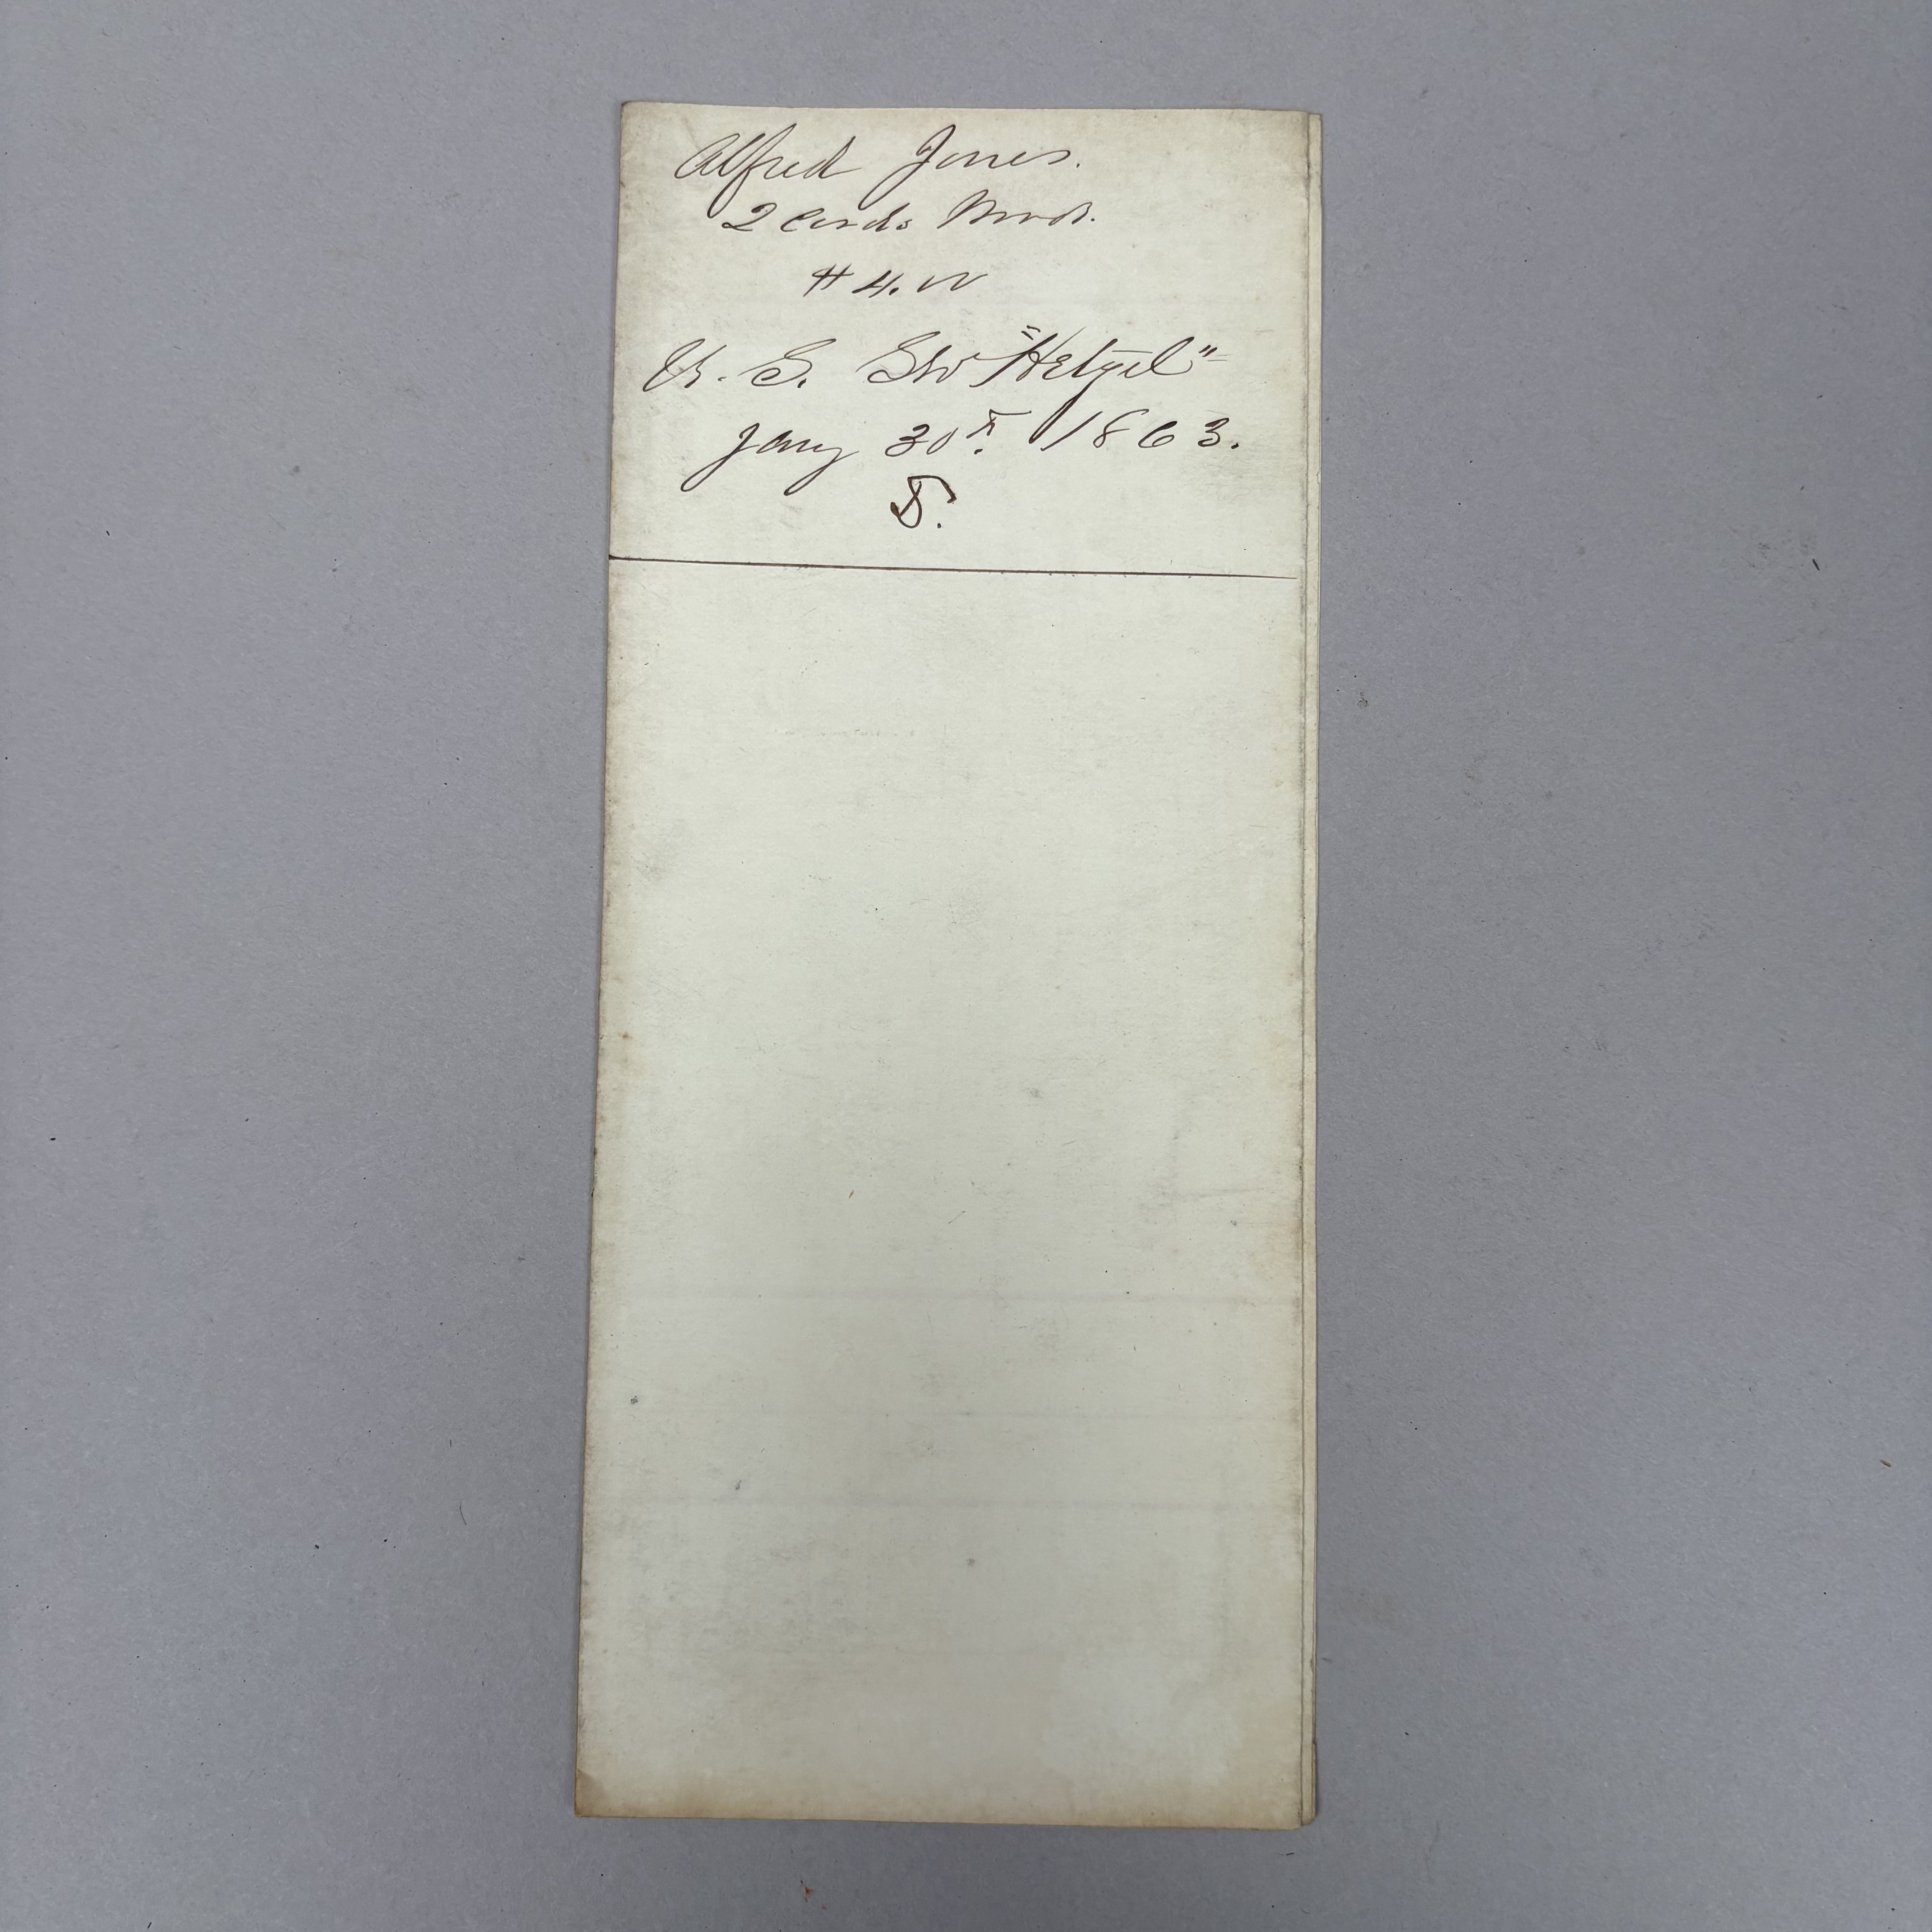 Alfred Jones.
2 Cords Wood.
$4.00
U. S. Str "Hetzel"
Jany 30th. 1863.
5.